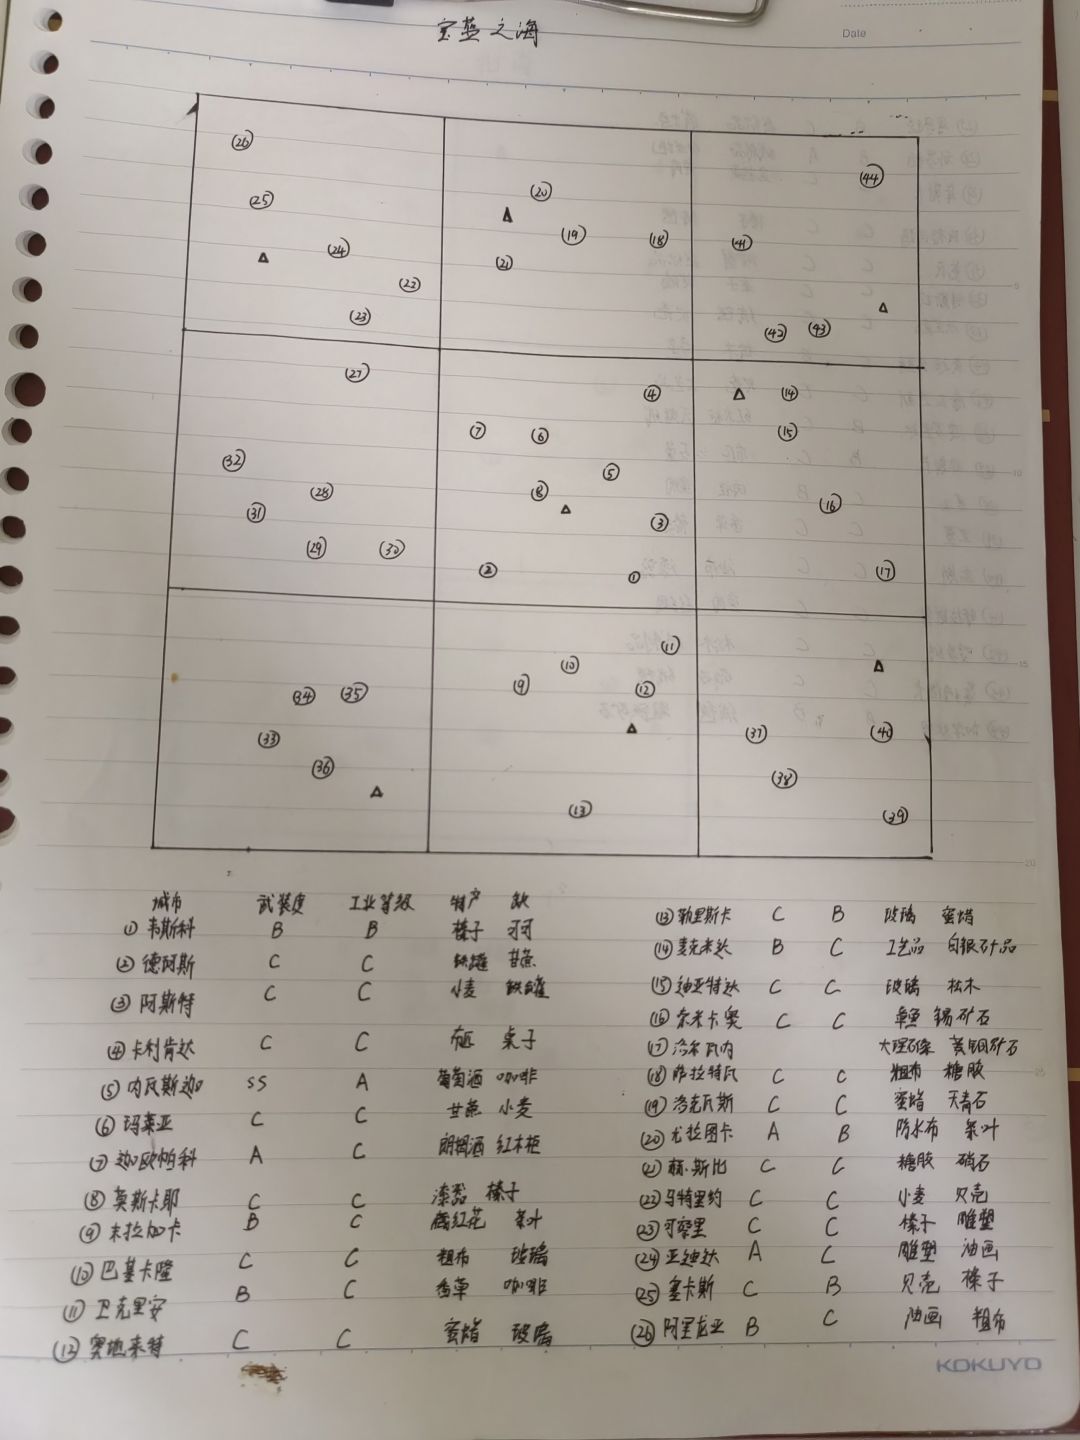 宝蓝之海
Date
26
44
20
25
19
18
41
24
21
22
23
42
43
27
4
14
7
6
15
32
5
28
8
16
31
3
29
30
2
1
17
11
10
34
35
9
12
33
37
40
36
38
13
39
城市 武装度 工业等级 特产 缺
① 韦斯科 B B 榛子 可可
② 德阿斯 C C 铁罐 甘蔗
③ 阿斯特 C C 小麦 铁罐
④ 卡利肯达 C C 布匹 桌子
⑤ 内瓦斯迦 SS A 葡萄酒 咖啡
⑥ 玛莱亚 C C 甘蔗 小麦
⑦ 迦欧帕科 A C 朗姆酒 红木柜
⑧ 莫斯卡耶 C C 漆器 榛子
⑨ 木拉加卡 B C 藏红花 茶叶
⑩ 巴基卡隆 C C 粗布 玻璃
⑪ 卫克里安 B C 香草 咖啡
⑫ 奥地来特 C C 蜜蜡 玻璃
⑬ 勒里斯卡 C B 玻璃 蜜蜡
⑭ 麦克米达 B C 工艺品 白银矿品
⑮ 迪亚特达 C C 玻璃 松木
⑯ 奈米卡奥 C C 章鱼 锡矿石
⑰ 洛尔瓦内 大理石条 黄铜矿石
⑱ 萨拉特瓦 C C 粗布 糖胶
⑲ 洛克瓦斯 C C 蜜蜡 天青石
⑳ 尤拉图卡 A B 防水布 茶叶
㉑ 赫斯比 C C 糖胶 硝石
㉒ 马特里约 C C 小麦 贝壳
㉓ 可察里 C C 榛子 雕塑
㉔ 亚迪达 A C 雕塑 油画
㉕ 塞卡斯 C B 贝壳 榛子
㉖ 阿里龙亚 B C 油画 粗布
KOKUYO